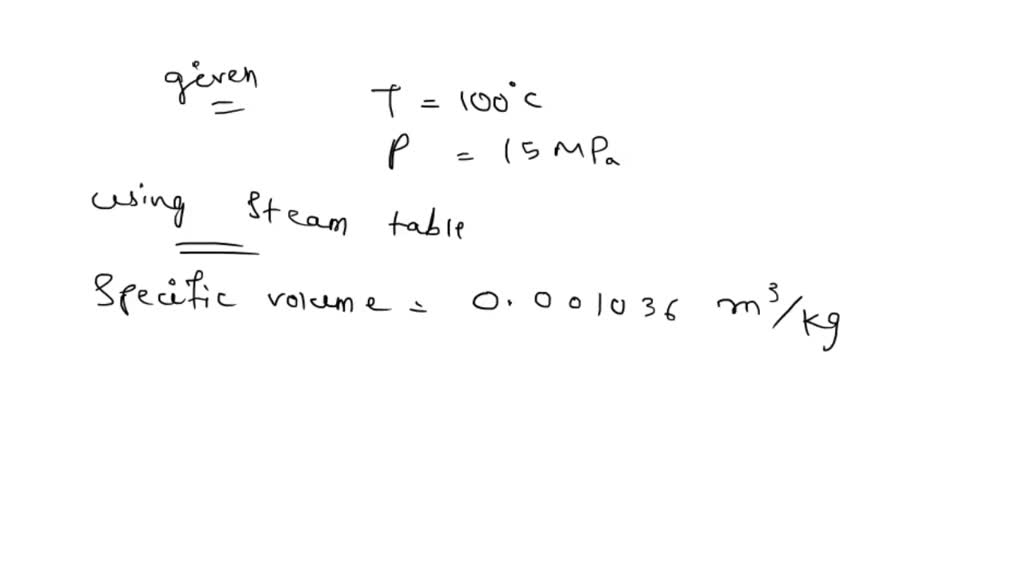 given
T = 100°C
P = 15 MPa
using steam table
Specific volume = 0.001036 m³/kg